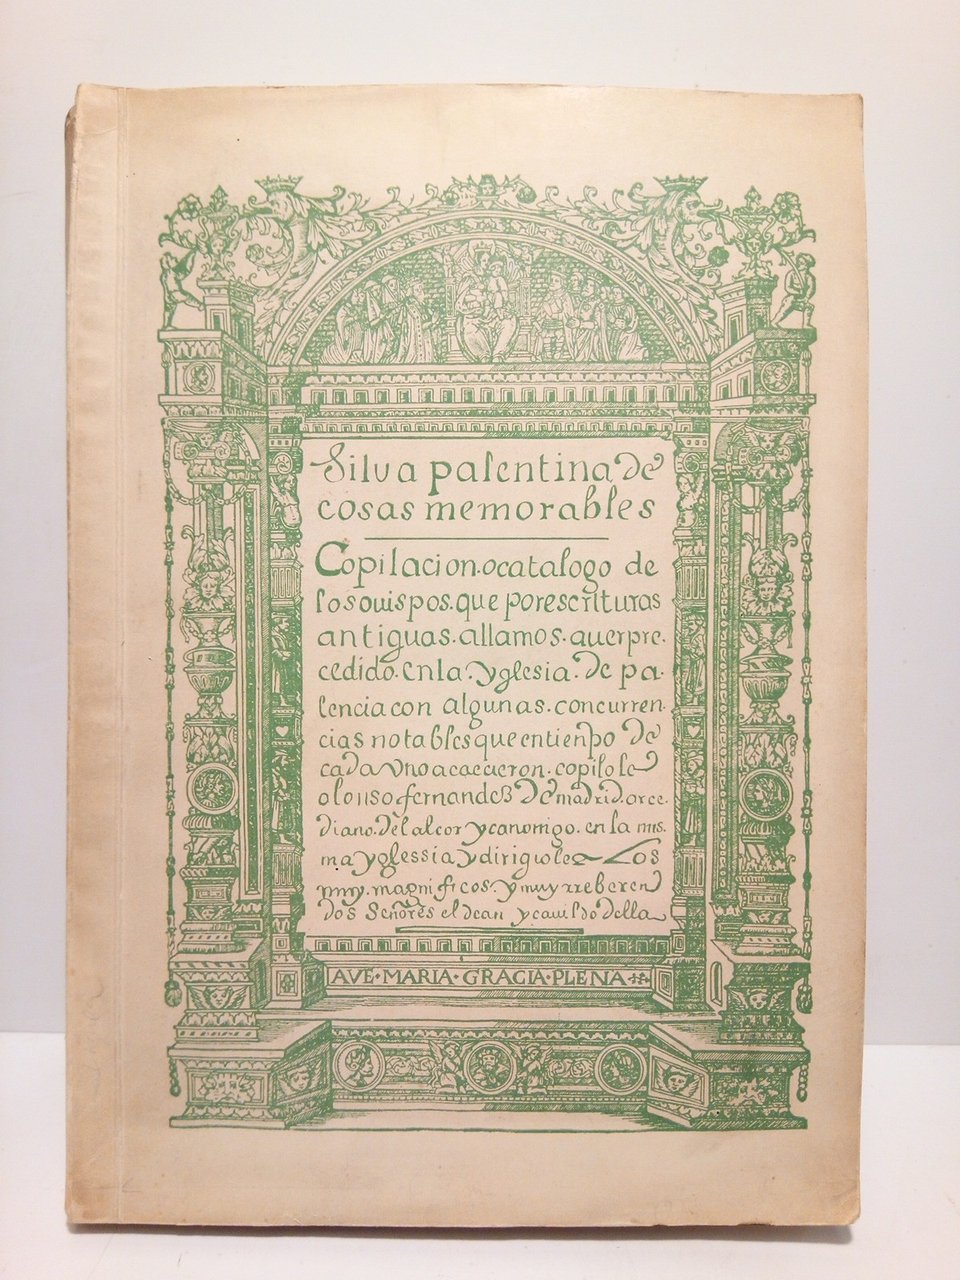 Silva palentina de
cosas memorables
Copilacion.o catalogo de
los ouispos.que por escrituras
antiguas.allamos.auer pre.
cedido.en la.yglesia.de pa.
lencia con algunas.concurren.
cias notables que en tienpo de
cada vno acaecieron.copilole
alonso fernandez de madrid.arce.
diano.del alcor y canonigo.en la mis.
ma yglessia y dirigiole a los
muy.magnificos.y muy rreberen
dos señores el dean y cauildo della
AVE·MARIA·GRACIA·PLENA